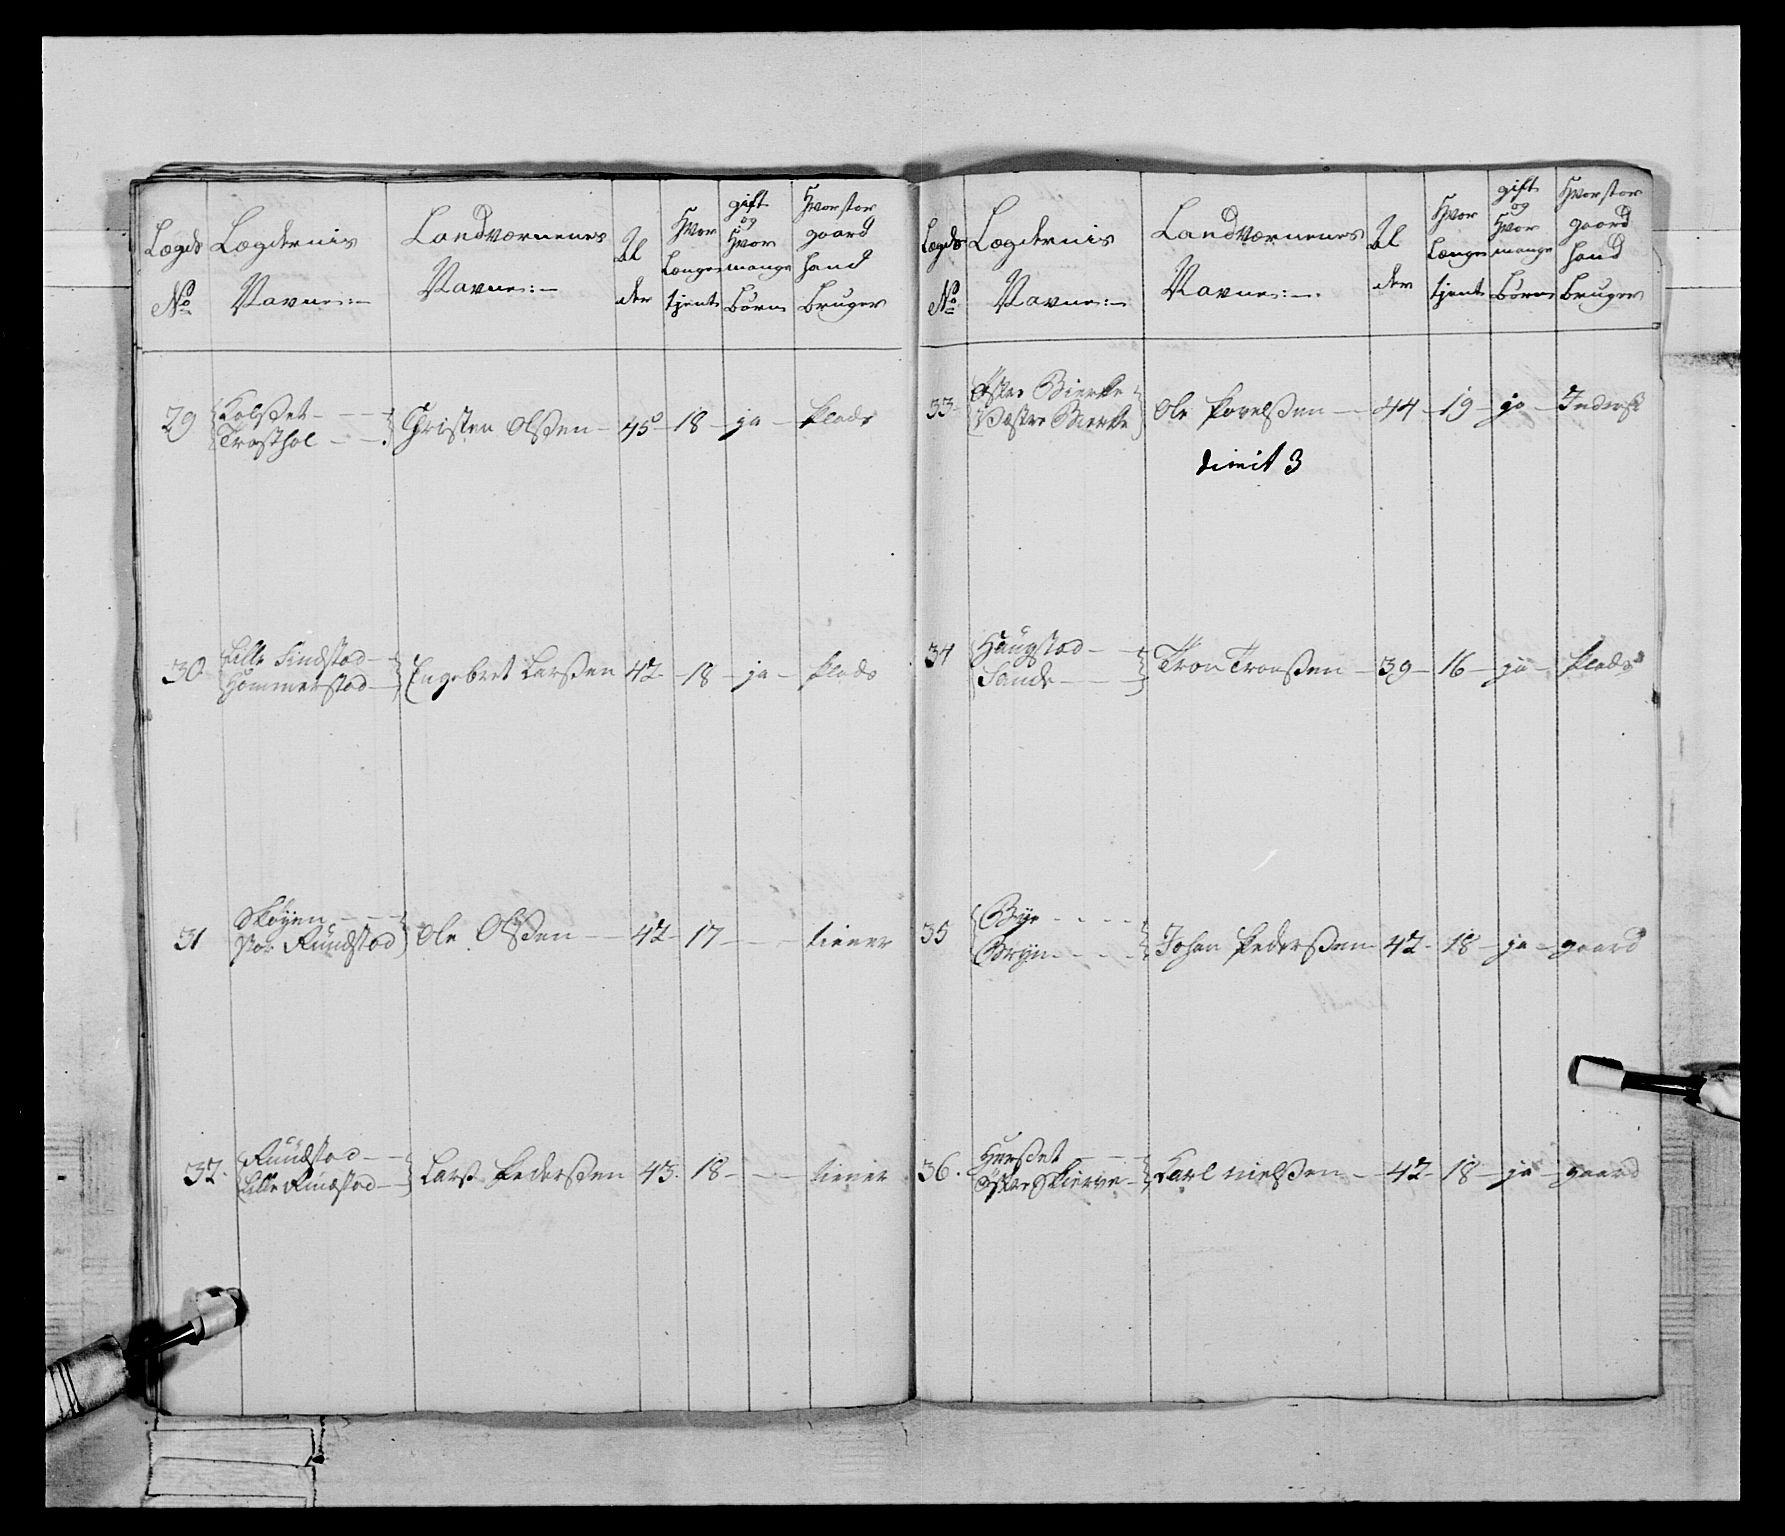 Lægds No
Lægdernis Navne:-
Landværnenes Navne:-
Alder
Hvor Længe tjent
gift og Hvor mange Børn
Hvor stor gaard hand Bruger
29 Kolsset - - - Trosthol - - Christen Olssen - 45 - 18 - ja - Plads
30 Lille Findstad - Hommerstad - Engebret Larssen 42 - 18 - ja - Plads
31 Skøyen - - - Rundstad Ole Olssen - 42 - 17 - - - tiener
32. Rundstad - - Lille Rundstad - Lars Pederssen 43. 18 - - - tiener
Lægds No
Lægdernis Navne:-
Landværnenes Navne:-.
Alder
Hvor Længe tjent
gift og Hvor mange Børn
Hvor stor gaard hand Bruger
33 Øster Bierke Væstre Bierke Ole Povelssen - 44 - 19 - ja - Inderst
dimit 3
34 Haugstad - - Sande - - - Tron Tronssen - 39 - 16 - ja - Plads
35 Bye - - - - Bryn - - - Johan Pederssen 42 - 18 - ja - gaard
36. Hersset - - - Øster Skierve - Karl nielssen - 42 - 18 - ja - gaard